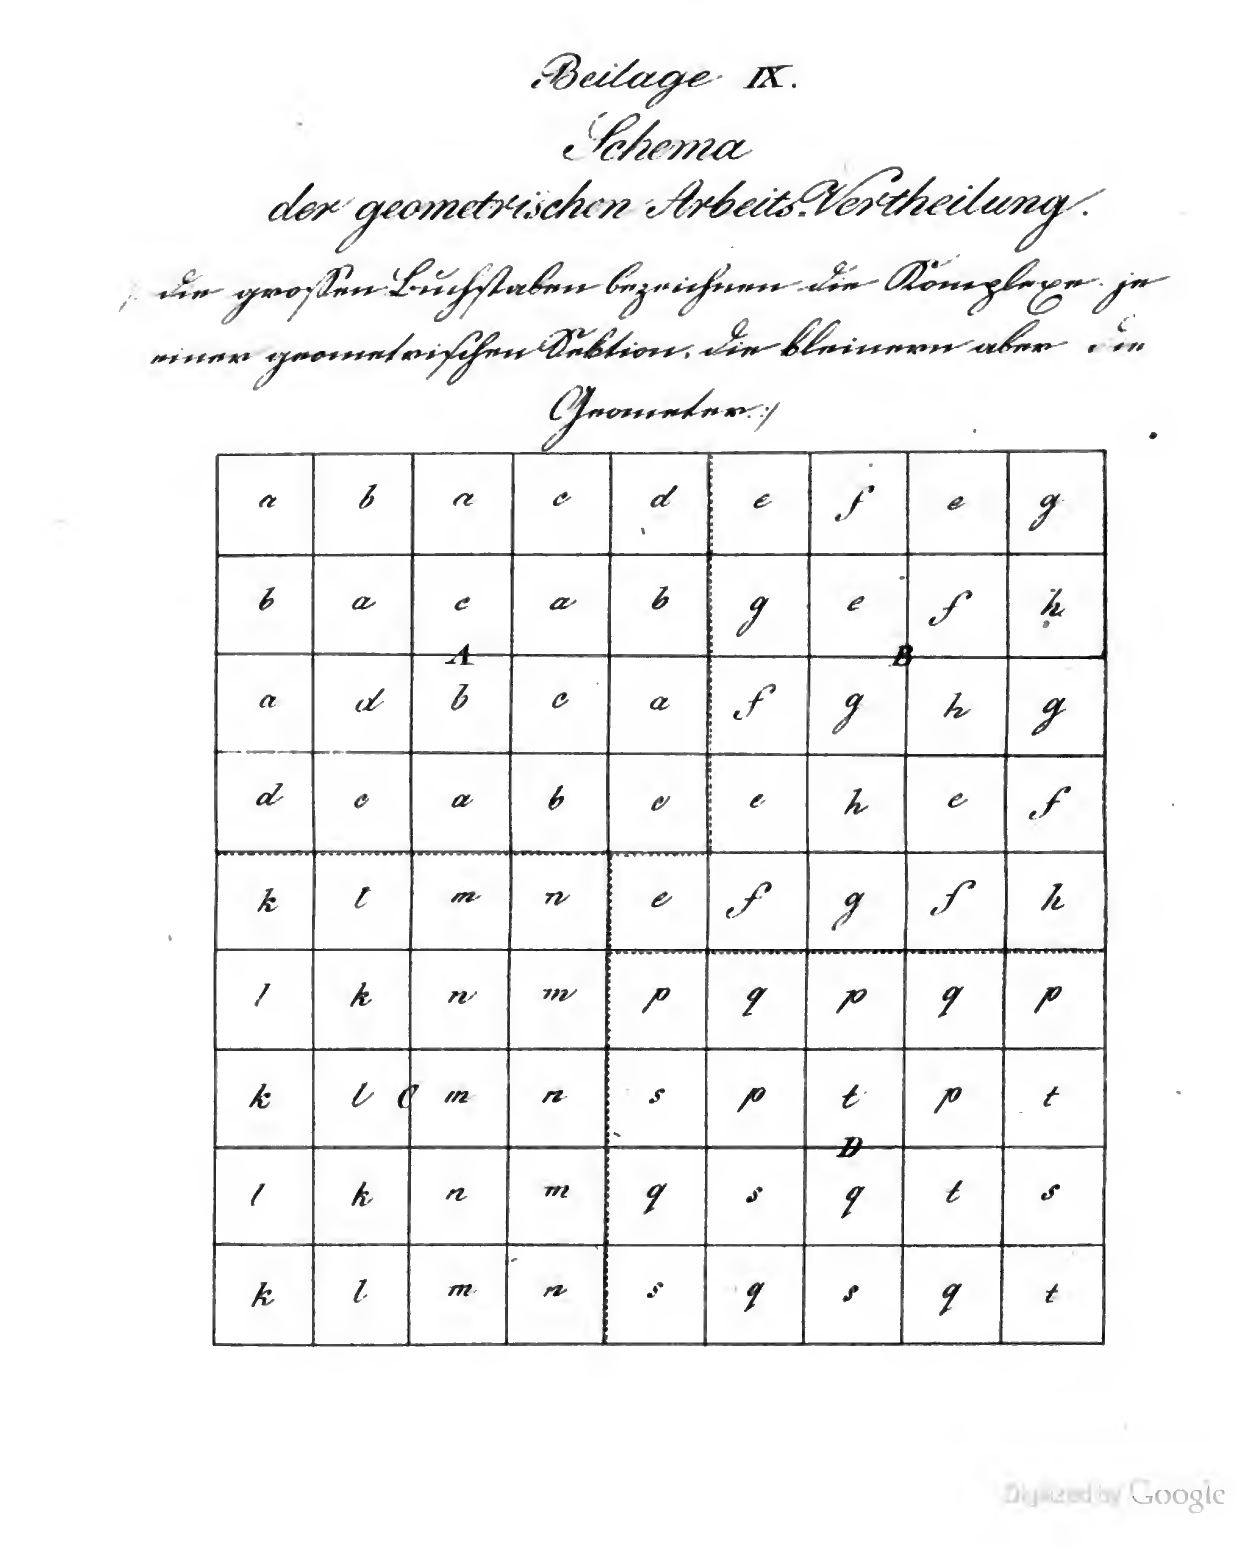 Beilage IX.
Schema
der geometrischen Arbeits-Vertheilung.
/: die grossen Buchstaben bezeichnen die Komplexe je
einer geometrischen Sektion, die kleinern aber die
Geometer. :/
a b a c d e f e g
b a c a b g e f h
A B
a d b c a f g h g
d c a b c e h e f
k l m n e f g f h
l k n m p q p q p
k l C m n s p t p t
D
l k n m q s q t s
k l m n s q s q t
Digitized by Google